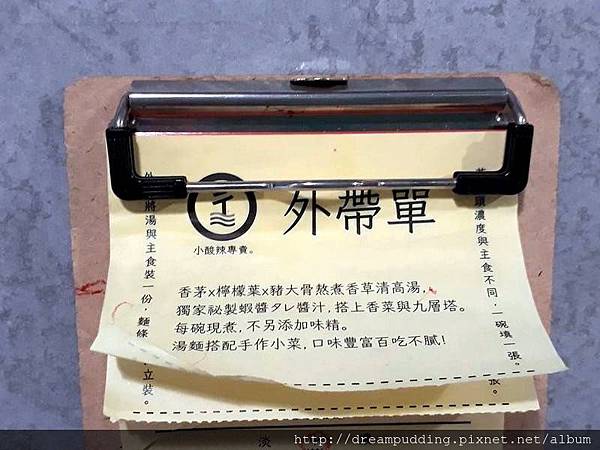 外帶單
小酸辣專賣。
香茅x檸檬葉x豬大骨熬煮香草清高湯,
獨家祕製蝦醬タレ醬汁,搭上香菜與九層塔。
每碗現煮,不另添加味精。
湯麵搭配手作小菜,口味豐富百吃不膩!
濃度與主食不同,一碗填一張。
將湯與主食裝一份,麵條
立裝。
張。
淡
http://dreampudding.pixnet.net/album